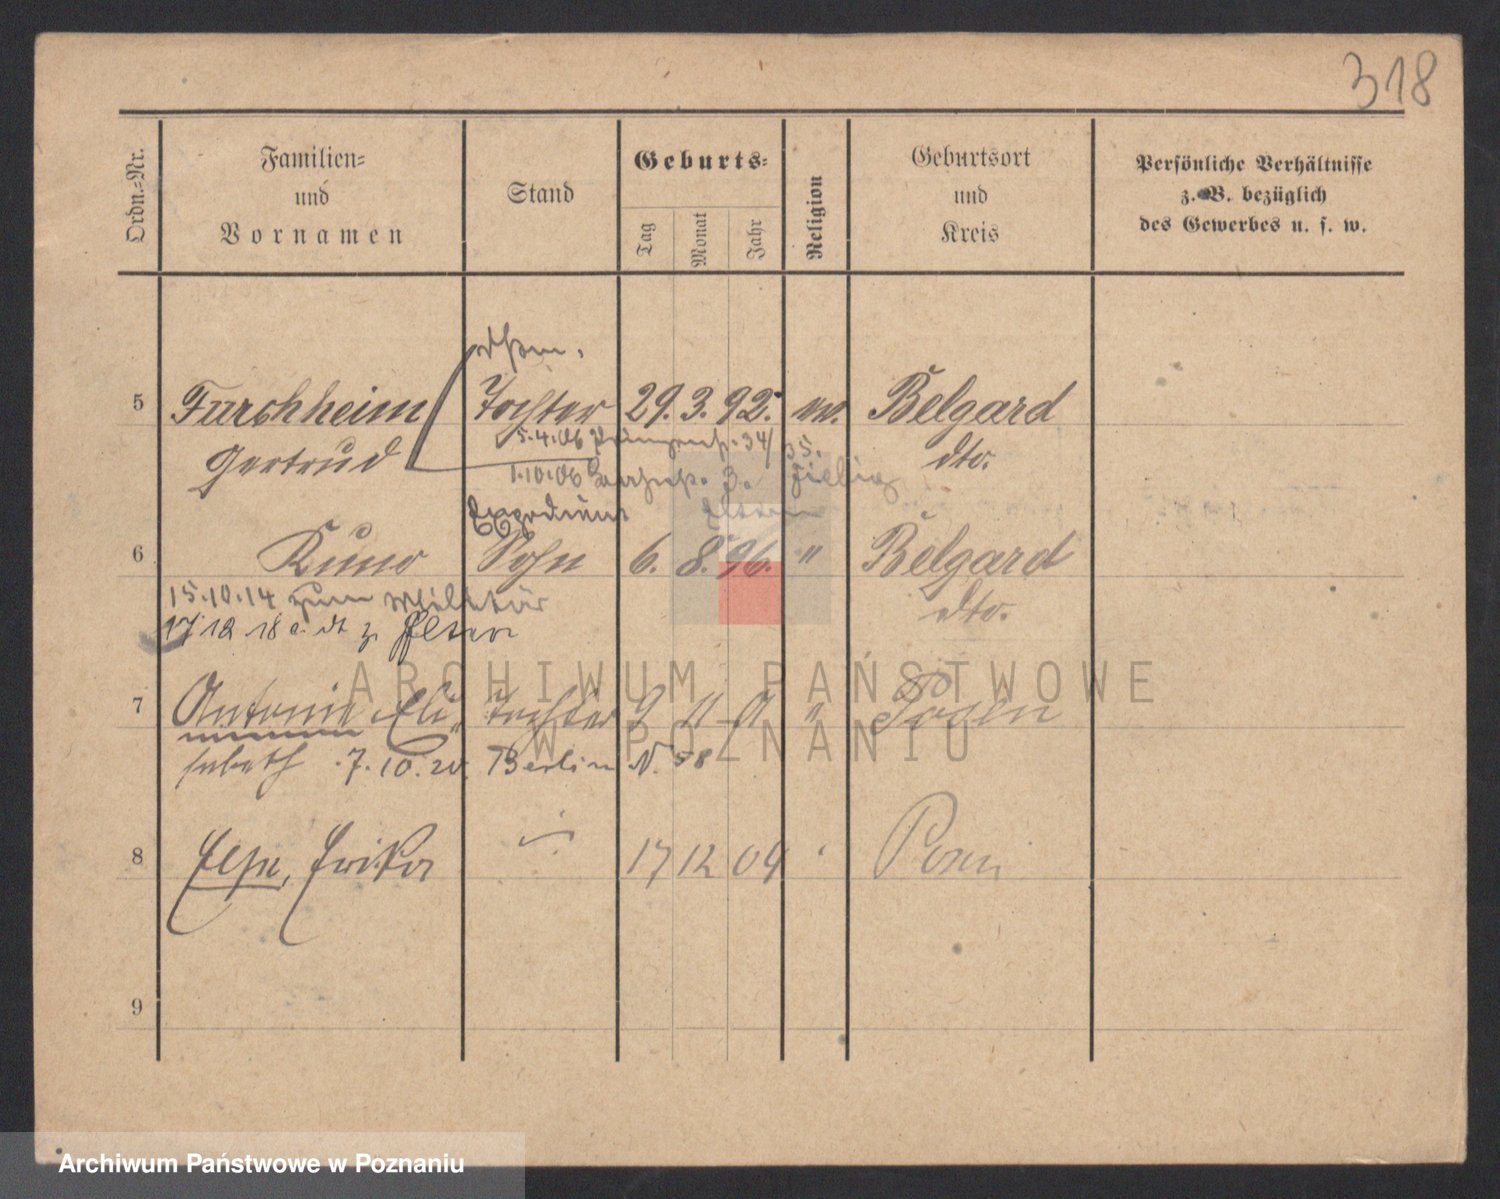 318
Ordn.-Nr.
Familien-
und
Vornamen
Stand
Geburts-
Tag
Monat
Jahr
Religion
Geburtsort
und
Kreis
Persönliche Verhältnisse
z. B. bezüglich
des Gewerbes u. s. w.
5 Furchheim Tochter 29. 3. 92. ev. Belgard
5.4.06 34/35.
Gertrud dto.
1.10.06 3.
Eltern
6 Kuno Sohn 6. 8. 96. " Belgard
15.10.14 zum Militär dto.
17 12 18 Eltern
7 Antonie Eli- Tochter 9 11 " Posen
sabeth 7.10.20 Berlin N. 58
8 Else, Erika 17 12 04 Posen
9
ARCHIWUM PAŃSTWOWE
W POZNANIU
Archiwum Państwowe w Poznaniu